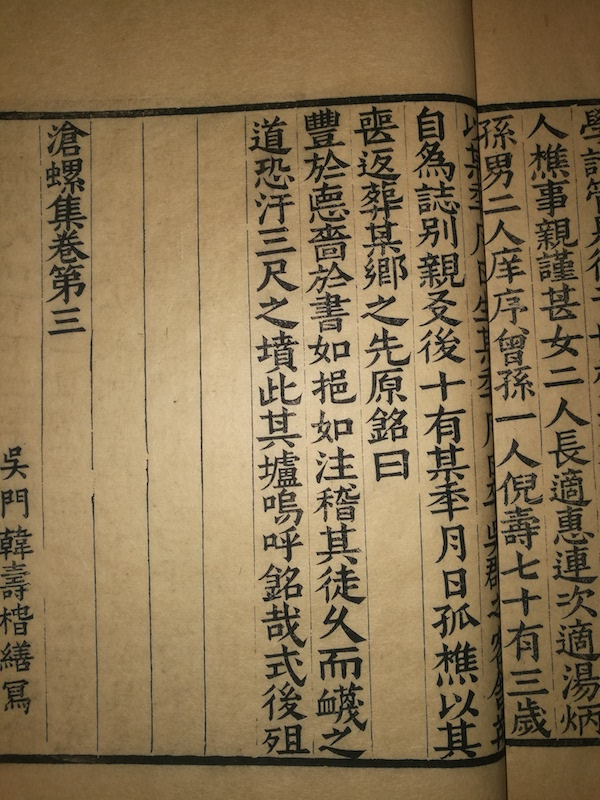 人樵事親謹甚女二人長適惠連次適湯炳
孫男二人庠序曾孫一人倪壽七十有三歲
自為誌別親叐後十有某秊月日孤樵以其
喪返葬某鄉之先原銘曰
豐於悳嗇於書如挹如注稽其徒乆而衊之
道恐汗三尺之墳此其壚嗚呼銘哉式後殂
滄螺集卷第三
吳門韓壽楷繕冩